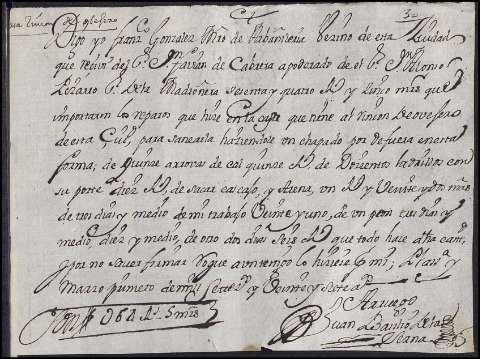 Digo yo Franco Gonzalez Mro de Albañileria Vezino de esta Ciudad
que recivi del Sr Dn de Cabrera apoderado de el Sr Dn Alonso
Sesenta y quatro Rs y zinco mrs que
importaron los reparos que hize en la casa que tiene al Rincon
de esta Ciud, para sanearla haziendole un chapado por defuera en esta
forma; de quinze arrovas de cal quinze Rs, de Dozientos ladrillos con
su porte diez Rs, de sacar cascajo, y Arena, un Rl y Veinte y dos mrs
de tres dias y medio de mi trabajo Veinte y uno, de un peon tres dias y
medio, diez y medio, de otro dos dias Seis Rs que todo haze dha cantd
y por no saver firmar rogue a un testigo lo hiziese por mi;
Marzo primero de mil Setezos y Veinte y Siete as
Son 064 Rs 5 mrs
Juan